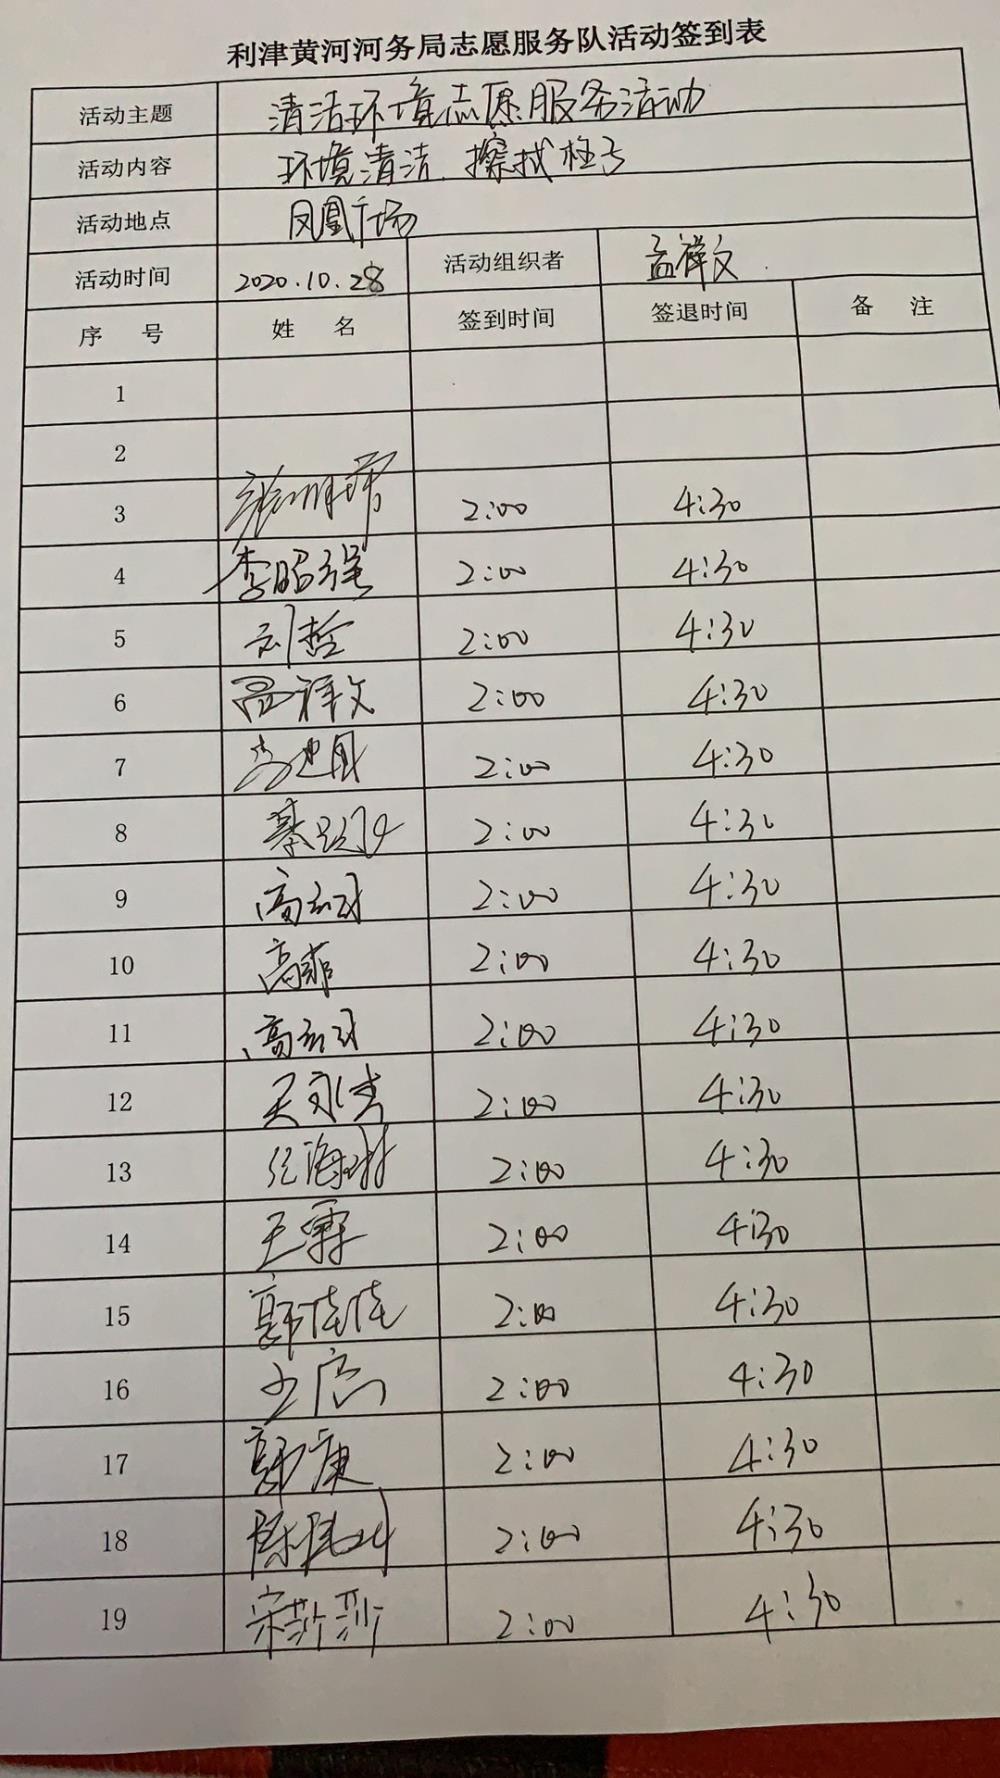 利津黄河河务局志愿服务队活动签到表
活动主题 清洁环境志愿服务活动
活动内容 环境清洁、擦拭柱子
活动地点 凤凰广场
活动时间 2020.10.28 活动组织者 孟祥文
序 号 姓 名 签到时间 签退时间 备 注
1
2
3 2:00 4:30
4 李昭强 2:00 4:30
5 刘哲 2:00 4:30
6 孟祥文 2:00 4:30
7 2:00 4:30
8 2:00 4:30
9 2:00 4:30
10 高菲 2:00 4:30
11 2:00 4:30
12 2:00 4:30
13 2:00 4:30
14 王霖 2:00 4:30
15 郭佳佳 2:00 4:30
16 2:00 4:30
17 郭康 2:00 4:30
18 2:00 4:30
19 宋莎莎 2:00 4:30